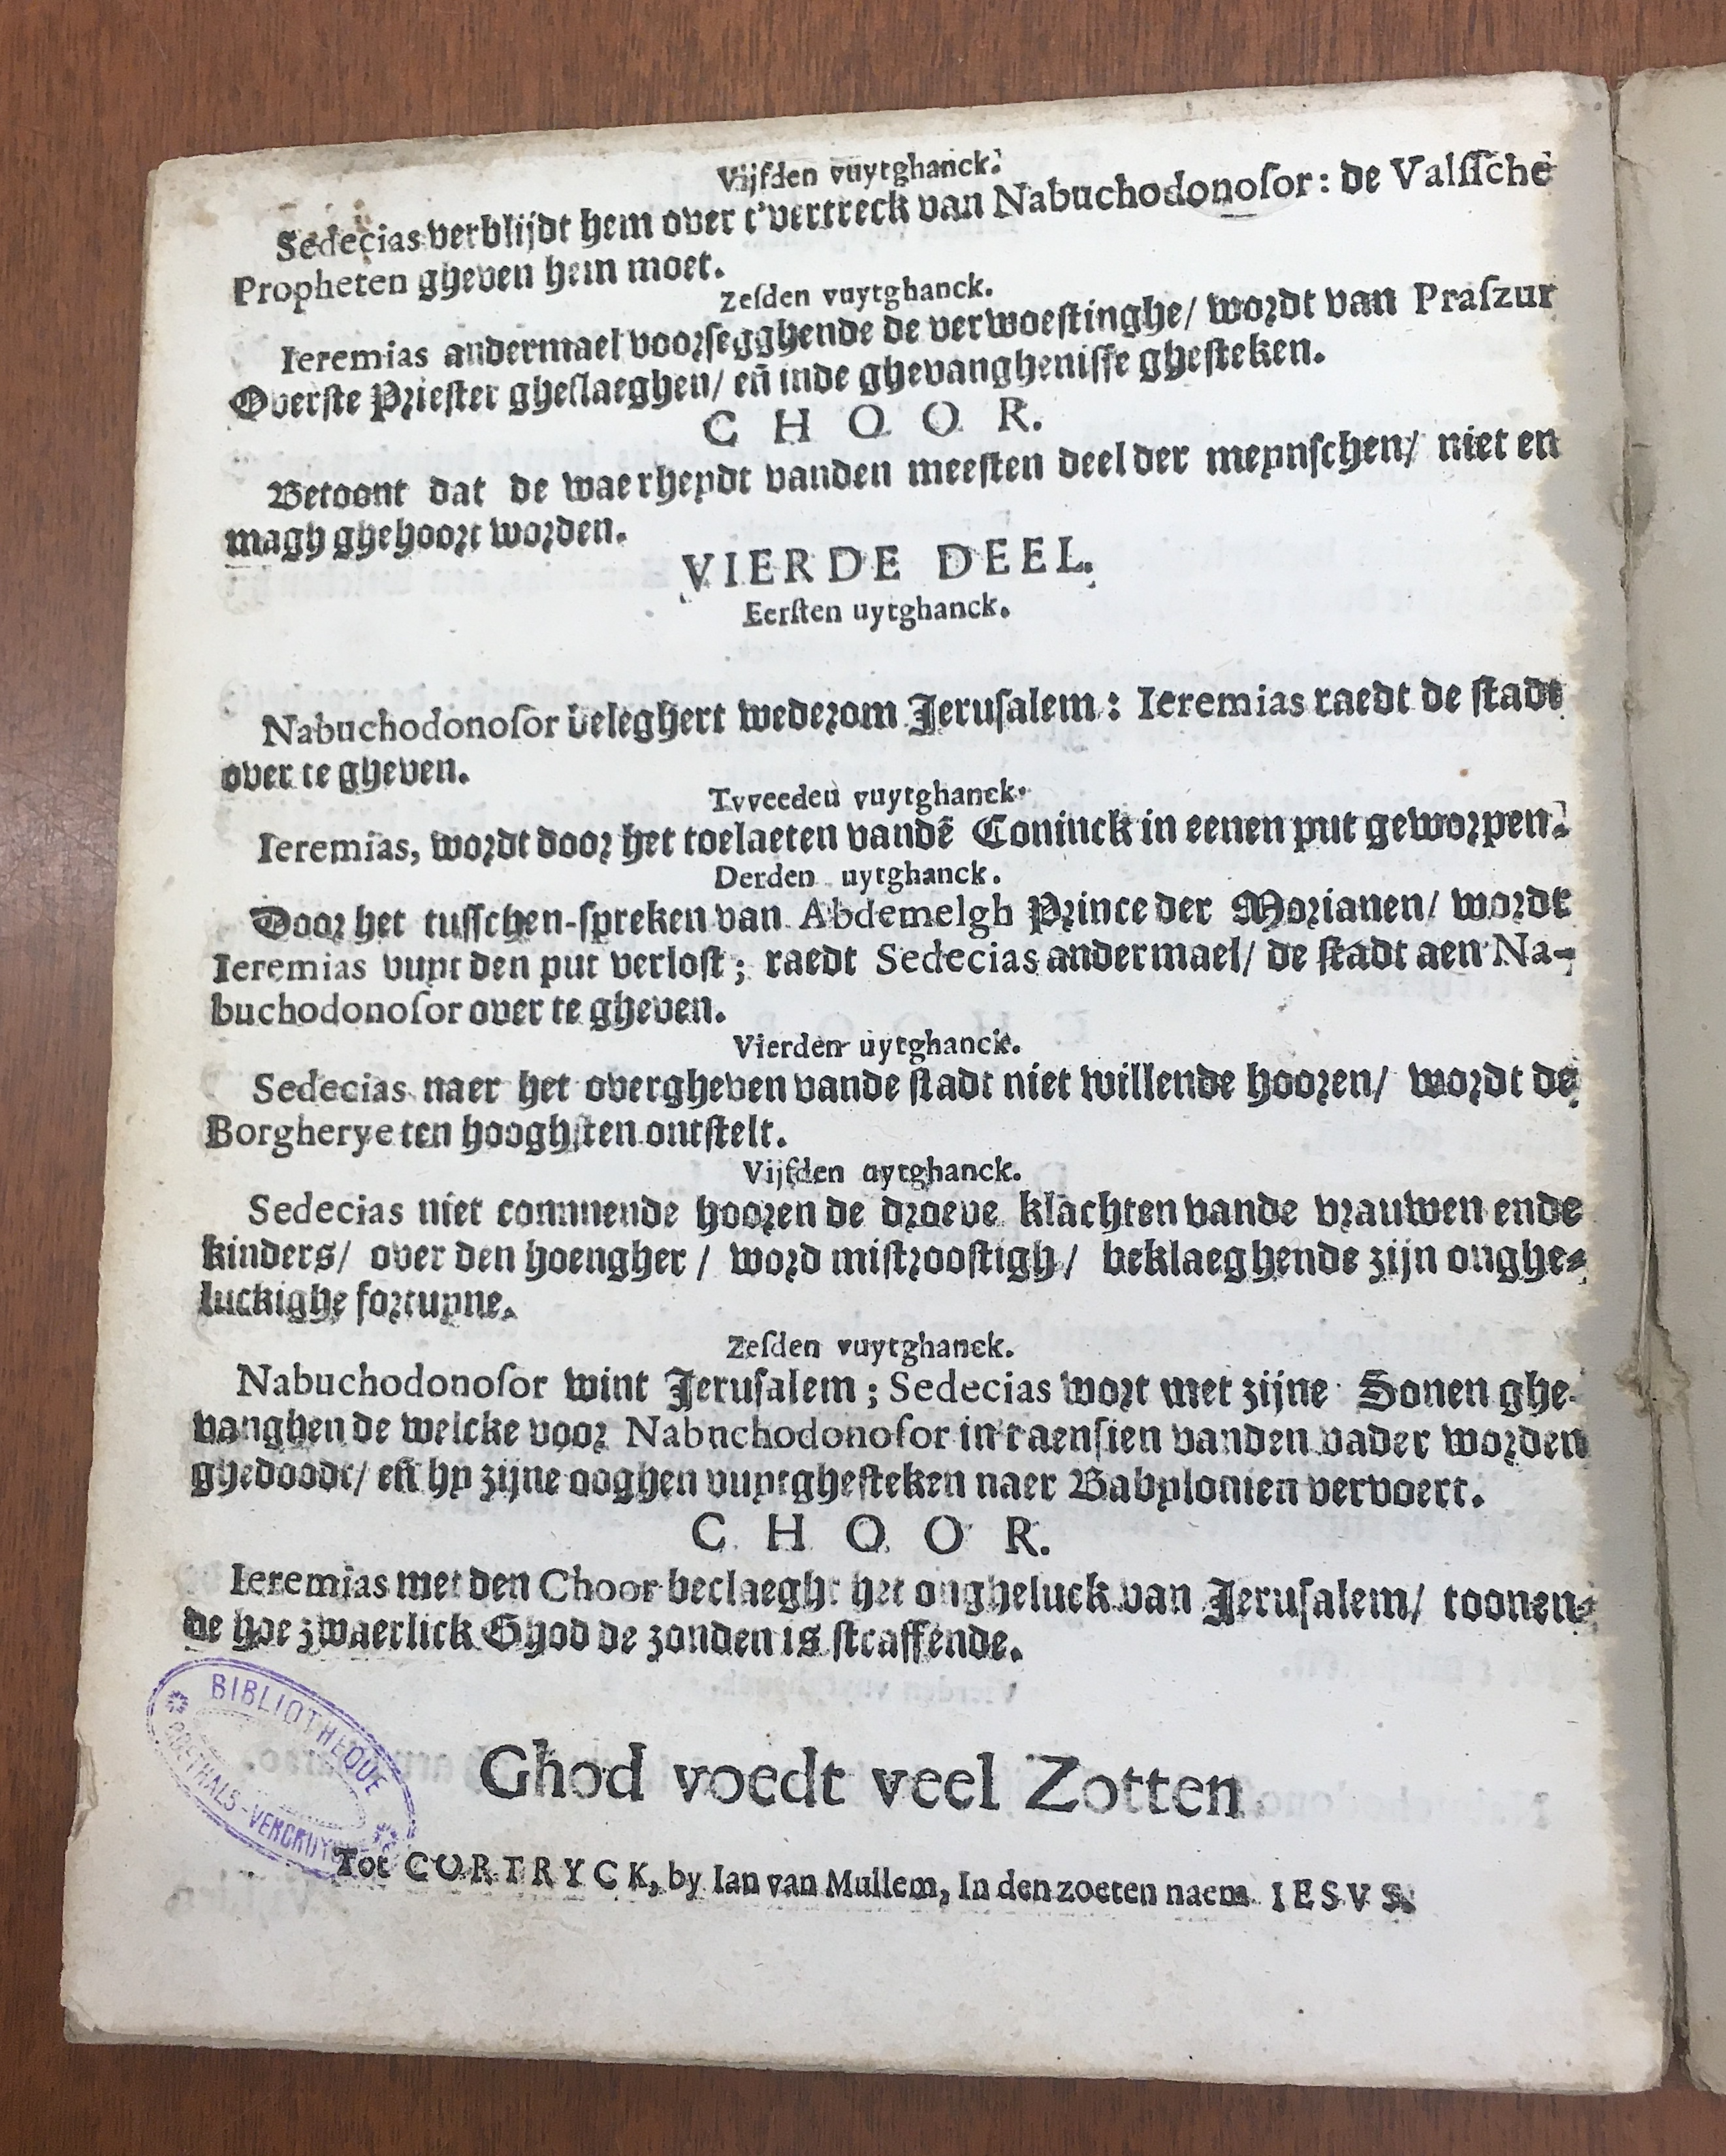 Vijfden vuytghanck.
Sedecias verblijdt hem over t'vertreck van Nabuchodonoſor: de Valſſche
Propheten gheven hem moet.
Zeſden vuytghanck.
Ieremias andermael voorſegghende de verwoeſtinghe/ wordt van Praſzur
Overſte Prieſter gheſlaeghen/ eñ inde ghevangheniſſe gheſteken.
CHOOR.
Betoont dat de waerheydt vanden meeſten deel der meynſchen/ niet en
magh ghehoort worden.
VIERDE DEEL.
Eerſten uytghanck.
Nabuchodonoſor beleghert wederom Jeruſalem: Ieremias raedt de ſtadt
over te gheven.
Tvveeden vuytghanck.
Ieremias, wordt door het toelaeten vandẽ Coninck in eenen put geworpen.
Derden uytghanck.
Door het tuſſchen-ſpreken van Abdemelgh Prince der Morianen/ wordt
Ieremias vuyt den put verloſt; raedt Sedecias andermael/ de ſtadt aen Na-
buchodonoſor over te gheven.
Vierden uytghanck.
Sedecias naer het overgheven vande ſtadt niet willende hooren/ wordt de
Borgherye ten hooghſten ontſtelt.
Vijfden uytghanck.
Sedecias niet connnende hooren de droeve klachten vande vrauwen ende
kinders/ over den hoengher/ word miſtrooſtigh/ beklaeghende zijn onghe-
luckighe fortuyne.
Zeſden vuytghanck.
Nabuchodonoſor wint Jeruſalem; Sedecias wort met zijne Sonen ghe-
vanghen de welcke voor Nabnchodonoſor in't aenſien vanden vader worden
ghedoodt/ eñ hy zijne ooghen vuytgheſteken naer Babylonien vervoert.
CHOOR.
Ieremias met den Choor beclaeght het ongheluck van Jeruſalem/ toonen-
de hoe zwaerlick Ghod de zonden is ſtraffende.
Ghod voedt veel Zotten
BIBLIOTHEQUE
GOETHALS-VERCRUYS
Tot CORTRYCK, by Ian van Mullem, In den zoeten naem IESVS.